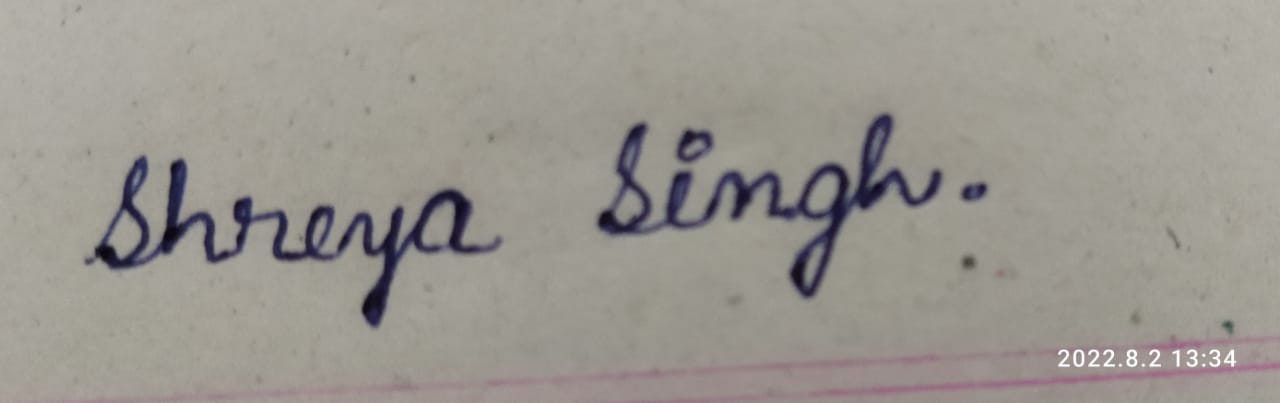 Shreya Singh.
2022.8.2 13:34